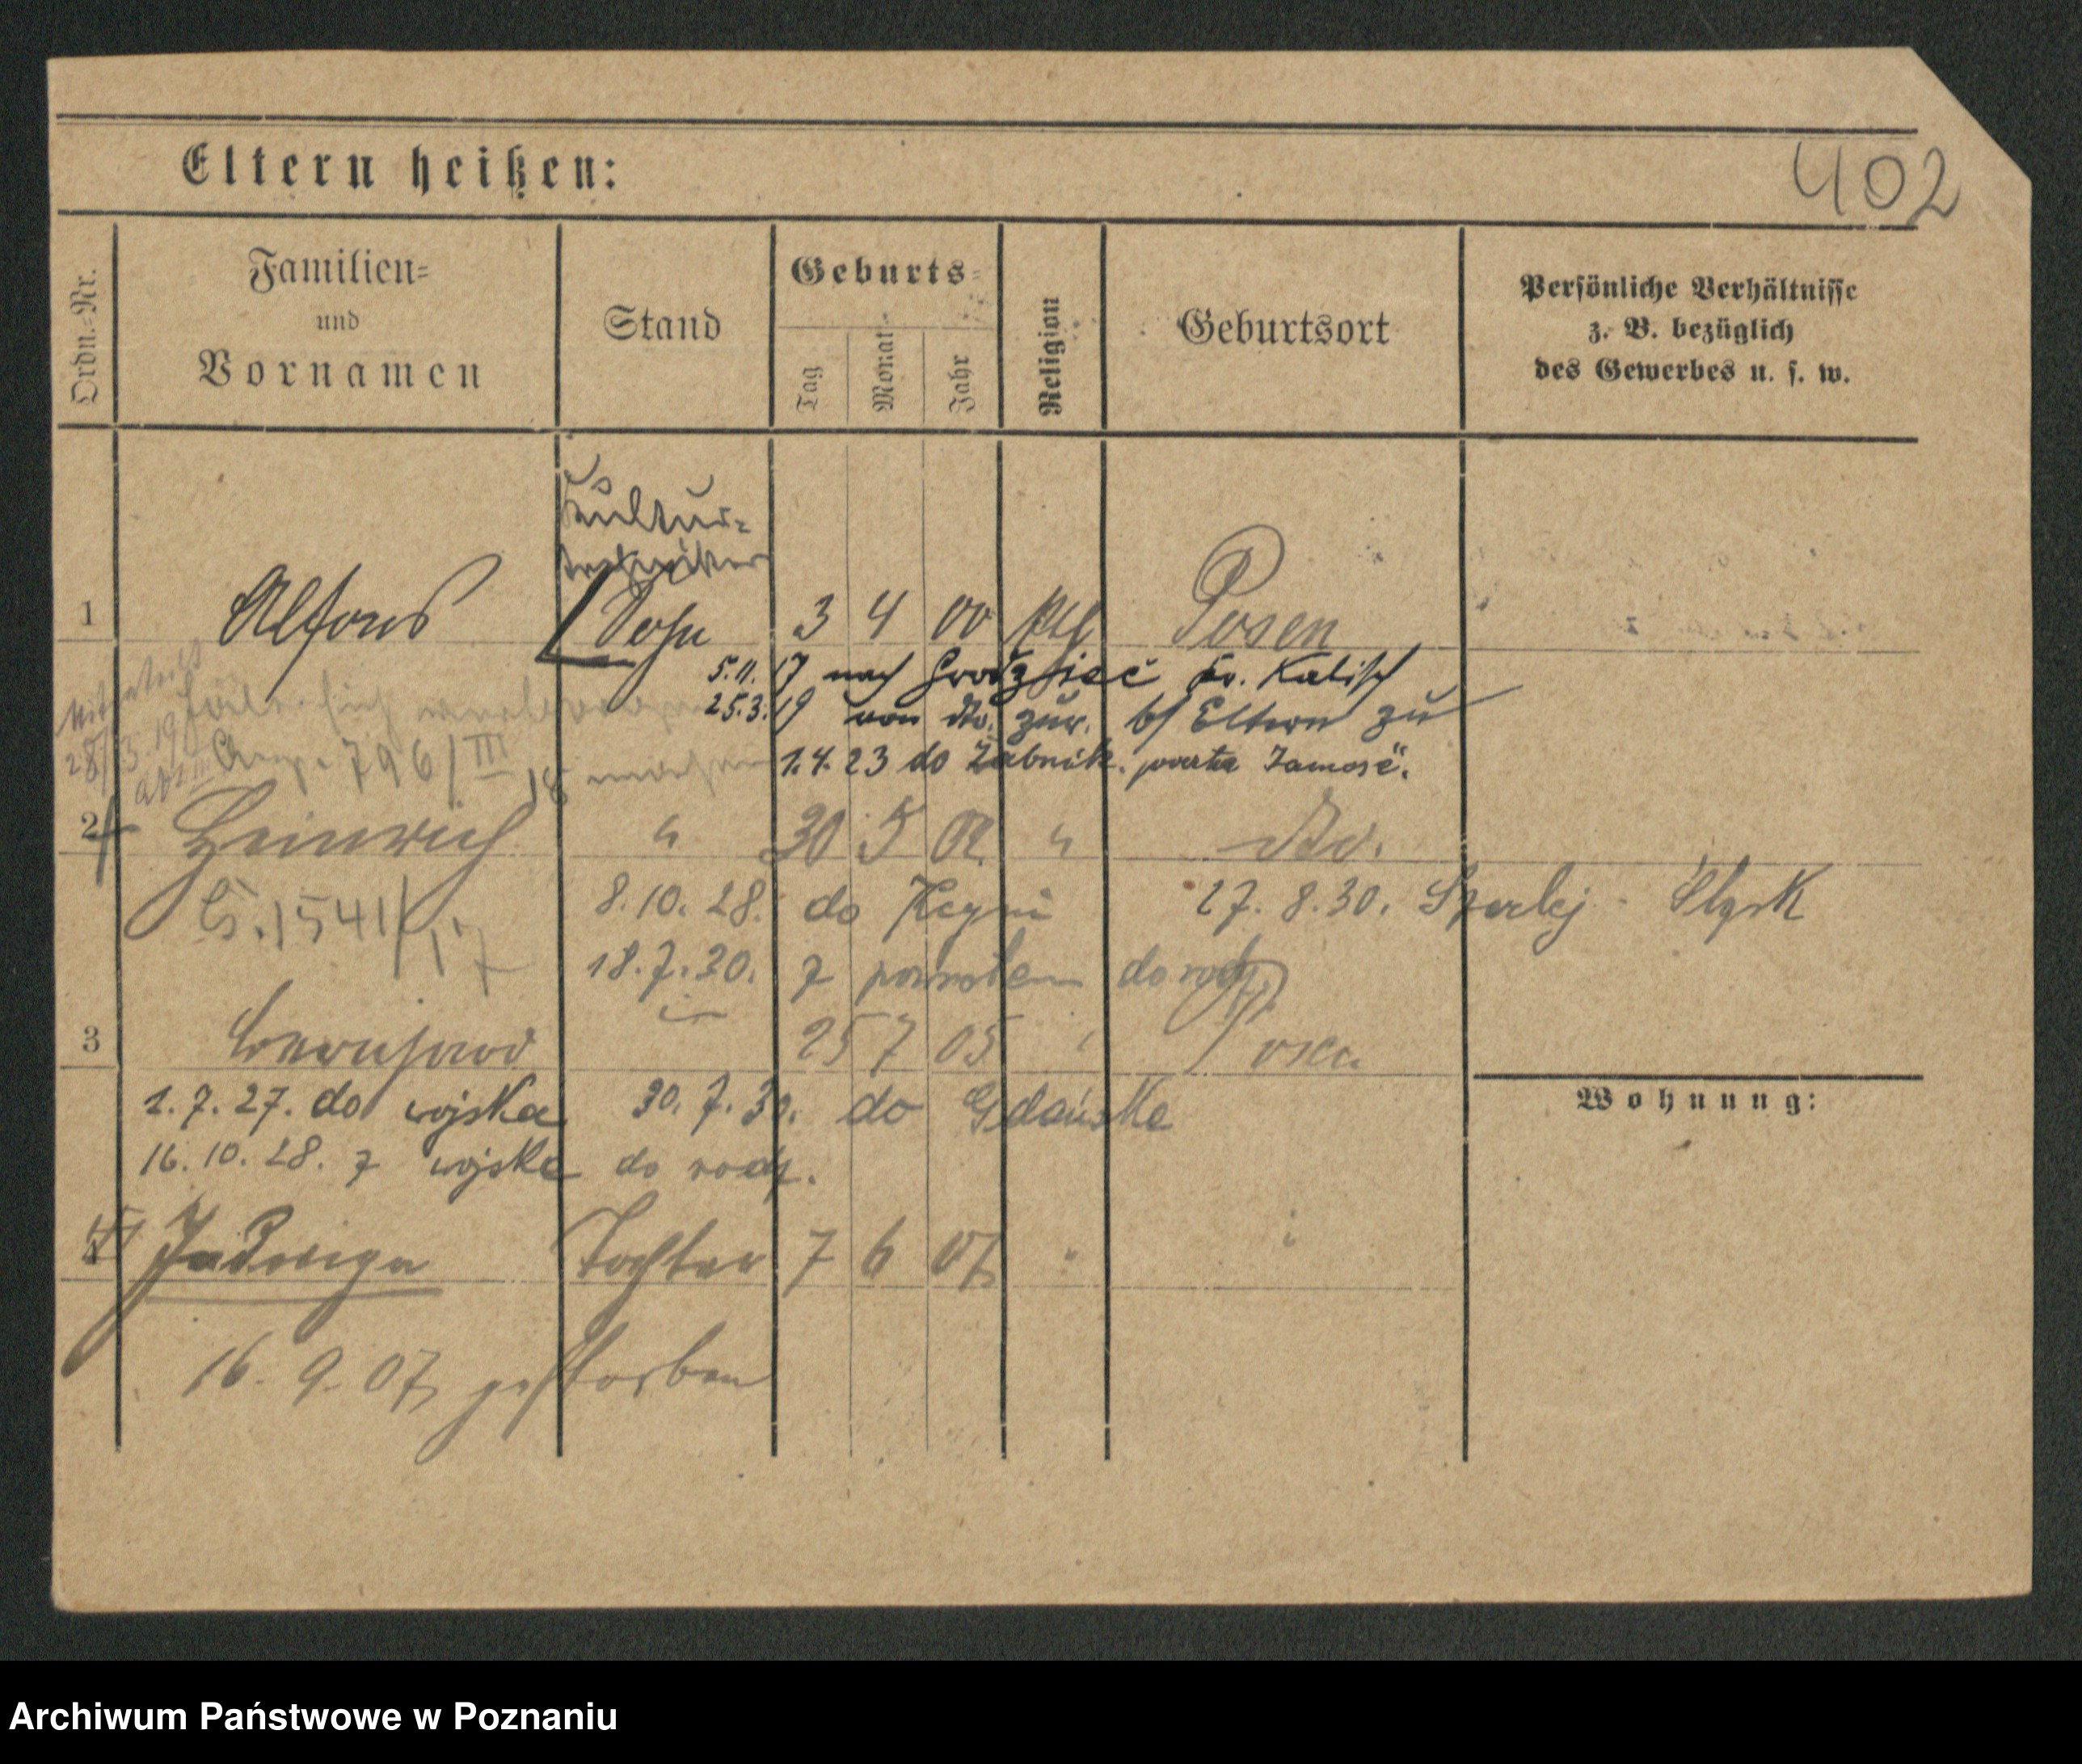 402
Eltern heißen:
Ordn.=Nr.
Familien=
und
Vornamen
Stand
Geburts=
Tag
Monat
Jahr
Religion
Geburtsort
Persönliche Verhältnisse
z. B. bezüglich
des Gewerbes u. s. w.
Kultur=
techniker
1 Alfons Sohn 3 4 00 kth Posen
5.11.17 nach Grodziec Kr. Kalisch
25.3.19 von do. zur. b/ Eltern zu
28/3. 19
Ang. 796/III 18
1.4.23 do Żabnik. powiat Zamość.
2 Heinrich " 30 5 02 " do.
S. 1541/17
8.10.28. do Kcyni 27.8.30. Szarlej - Śląsk
18.7.30. z powrotem do rodz.
3 25 7 05 Posen
1.7.27. do wojska 30.7.30. do Gdańska
16.10.28. z wojska do rodz.
4 Jadwiga Tochter 7 6 07 "
16.9.07 gestorben
Wohnung:
Archiwum Państwowe w Poznaniu